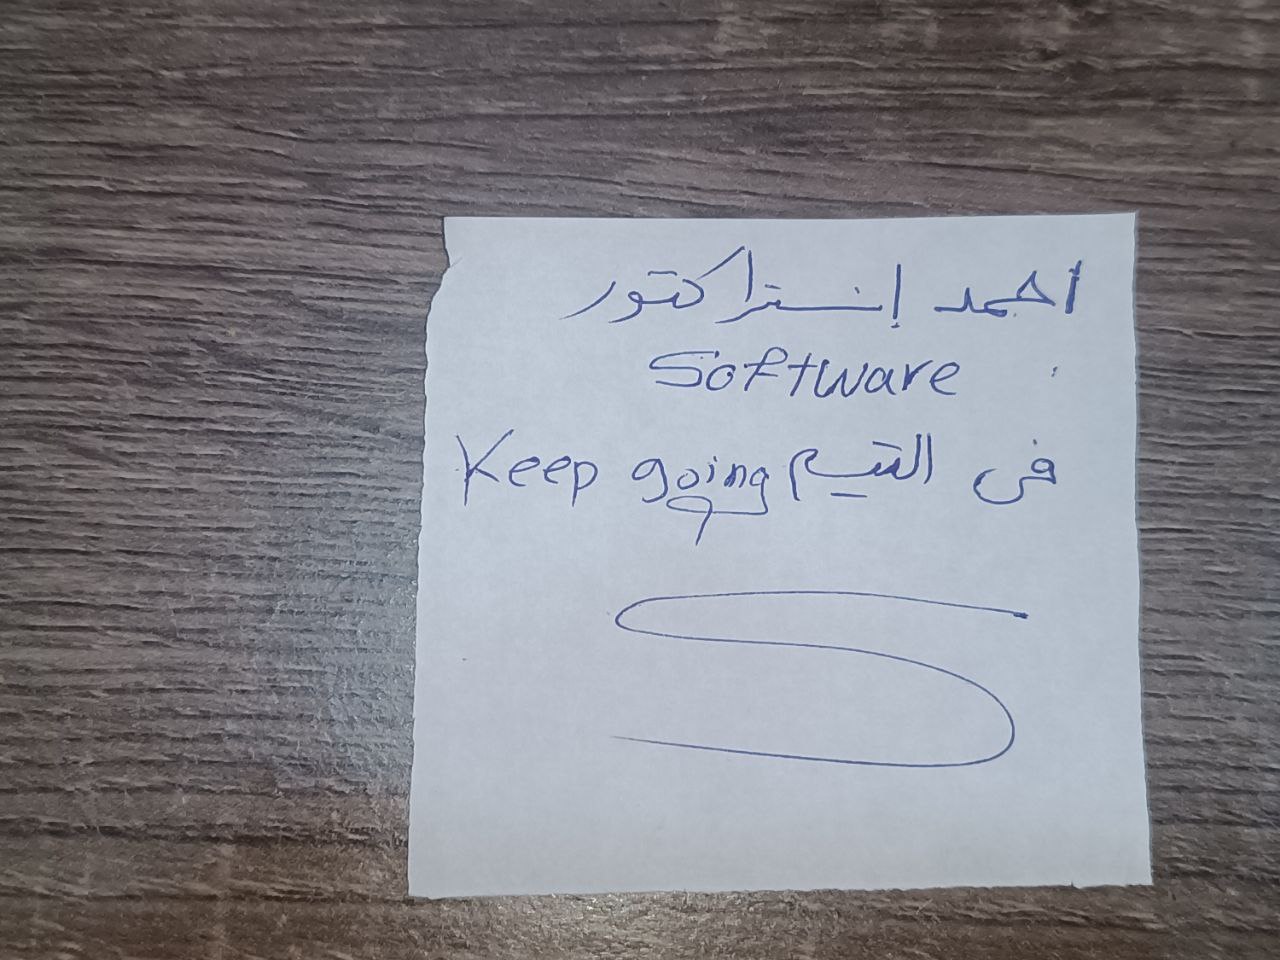 احمد إنستراكتور
Software
في التيم Keep going